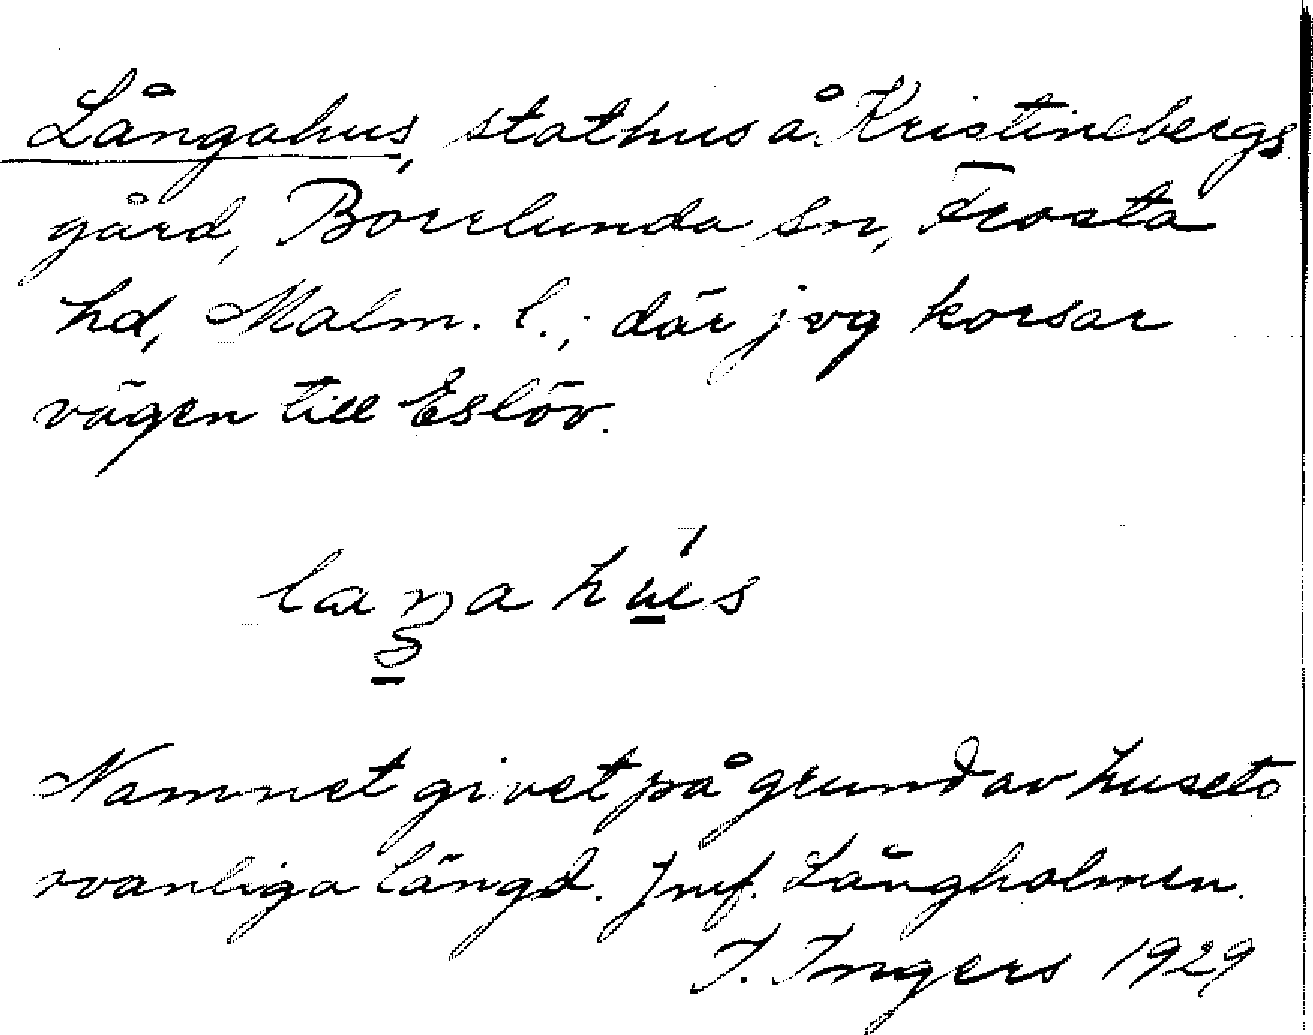 Långahus, stathus å Kristinebergs
gård, Borrlunda sn, Frosta
hd, Malm. l.; där jvg korsar
vägen till Eslöv.
Namnet givet på grund av husets
ovanliga längd. Jmf. Långholmen.
I. Ingers 1929